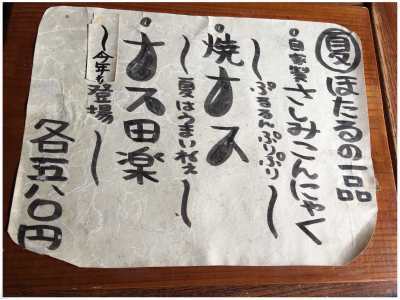 夏 ほたるの一品
・自家製さしみこんにゃく
〜ぷるるんぷりぷり〜
・焼ナス
〜夏はうまいねぇ〜
・ナス田楽
〜今年も登場〜
各五八〇円